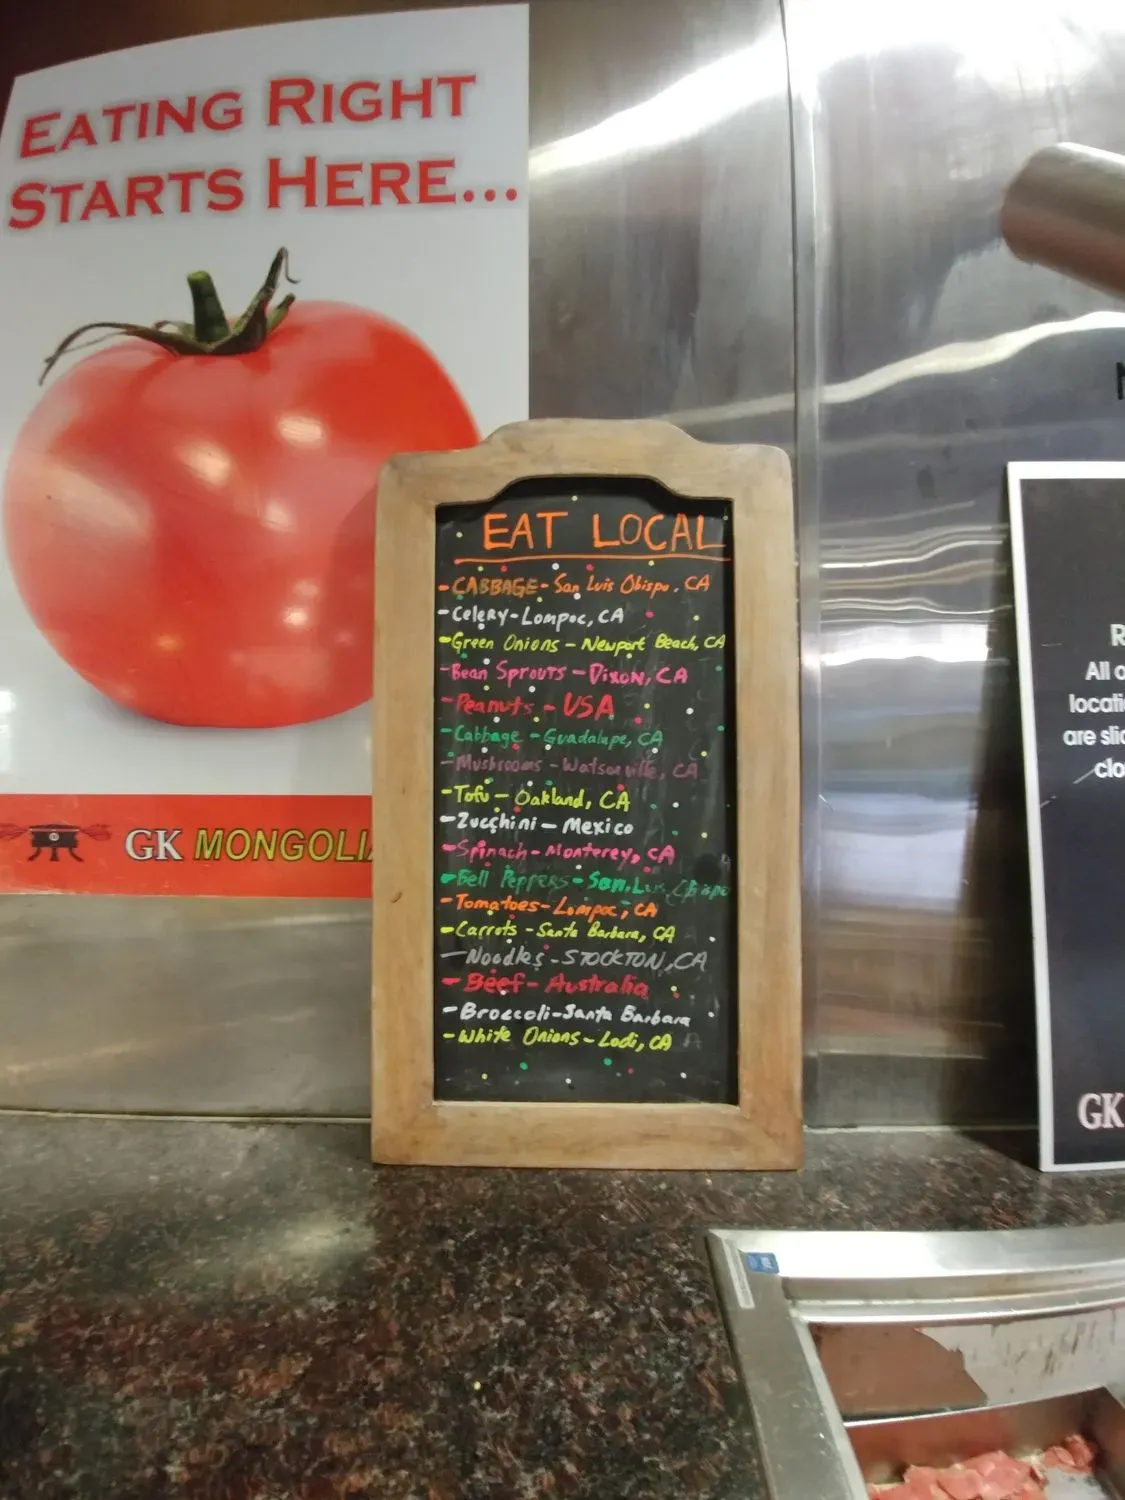 EATING RIGHT
STARTS HERE...
GK MONGOLIA
EAT LOCAL
- CABBAGE - San Luis Obispo, CA
- Celery - Lompoc, CA
- Green Onions - Newport Beach, CA
- Bean Sprouts - Dixon, CA
- Peanuts - USA
- Cabbage - Guadalupe, CA
- Mushrooms - Watsonville, CA
- Tofu - Oakland, CA
- Zucchini - Mexico
- Spinach - Monterey, CA
- Bell Peppers - San Luis Obispo
- Tomatoes - Lompoc, CA
- Carrots - Santa Barbara, CA
- Noodles - STOCKTON, CA
- Beef - Australia
- Broccoli - Santa Barbara
- White Onions - Lodi, CA
All o
locatio
are slic
clo
GK